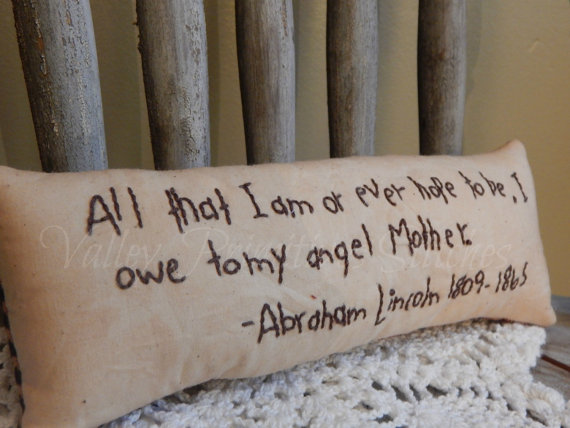 All that I am or ever hope to be, I
owe to my angel Mother.
-Abraham Lincoln 1809-1865
Valley Primitive Stitches